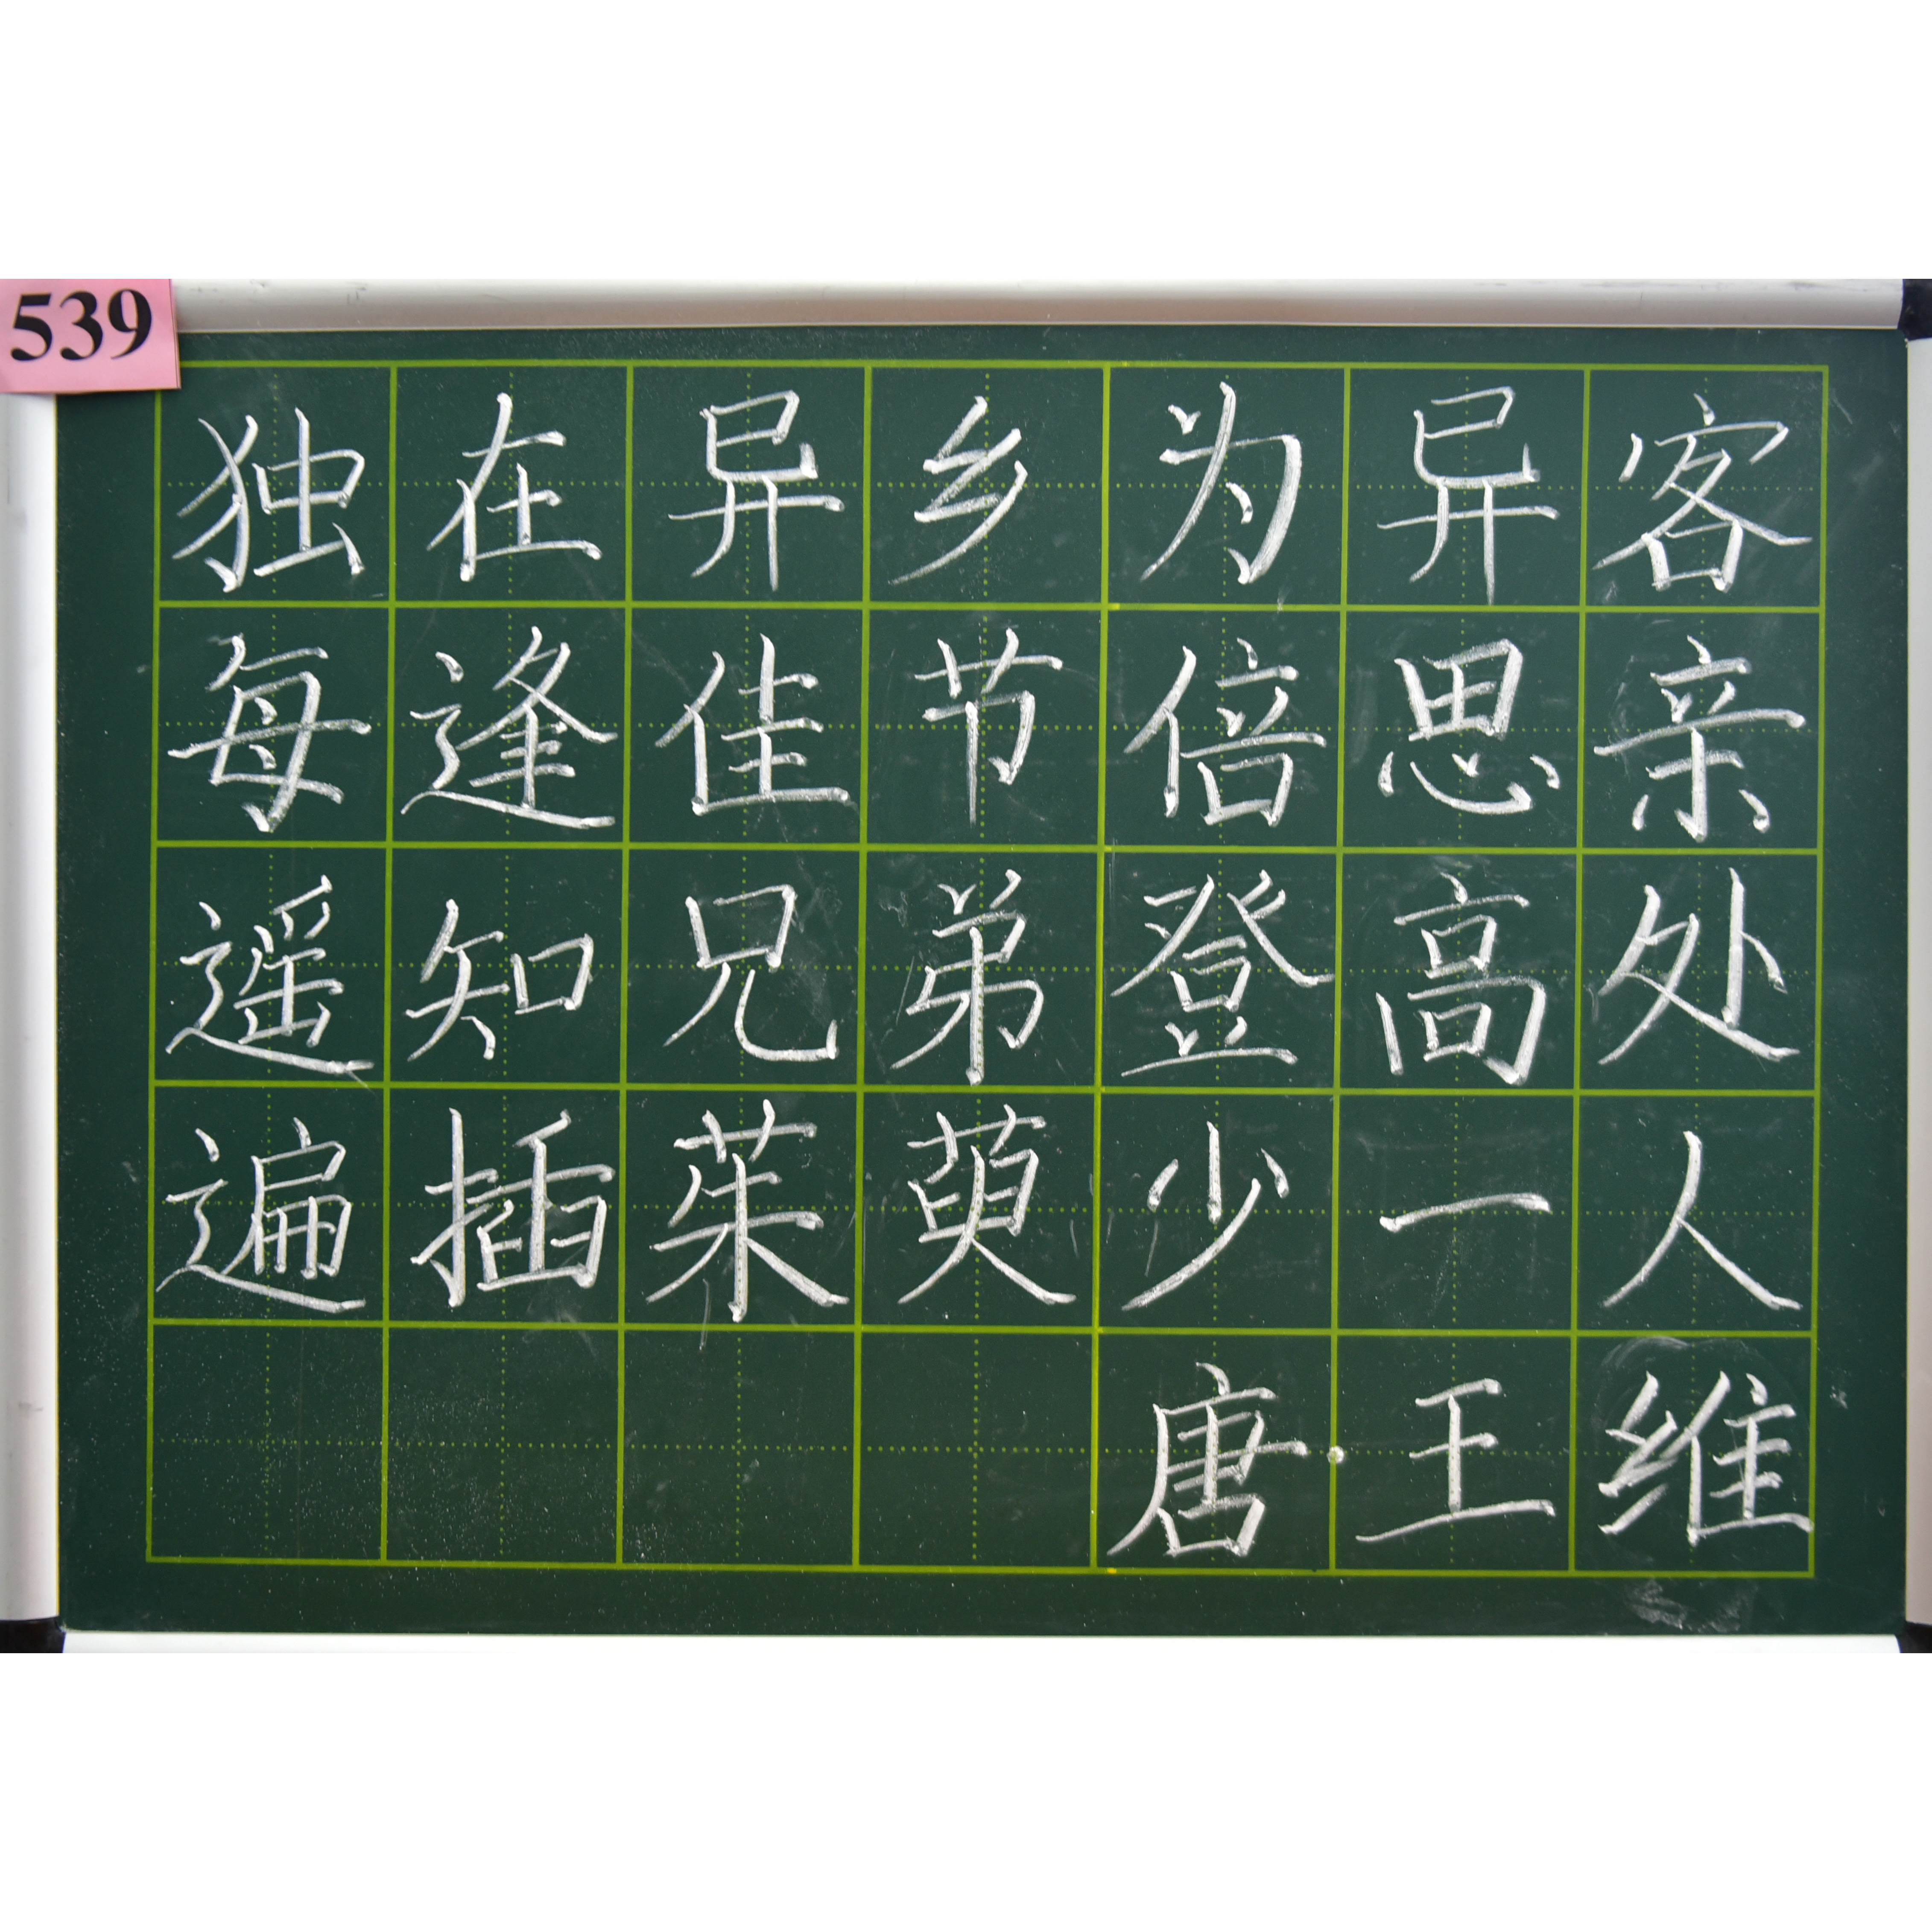 539
独在异乡为异客
每逢佳节倍思亲
遥知兄弟登高处
遍插茱萸少一人
唐·王维